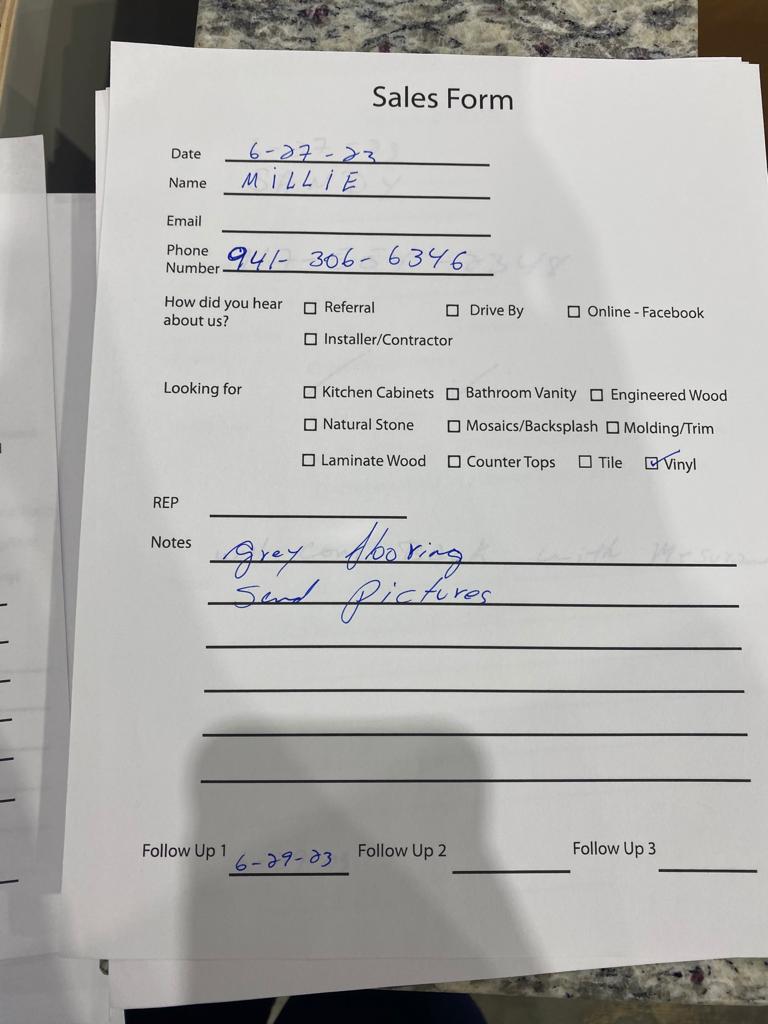 Sales Form
Date 6-27-23
Name MILLIE
Email
Phone Number 941-306-6346
How did you hear about us? ☐ Referral ☐ Drive By ☐ Online - Facebook
☐ Installer/Contractor
Looking for ☐ Kitchen Cabinets ☐ Bathroom Vanity ☐ Engineered Wood
☐ Natural Stone ☐ Mosaics/Backsplash ☐ Molding/Trim
☐ Laminate Wood ☐ Counter Tops ☐ Tile ☑ Vinyl
REP
Notes Grey flooring
Send Pictures
Follow Up 1 6-29-23 Follow Up 2 Follow Up 3